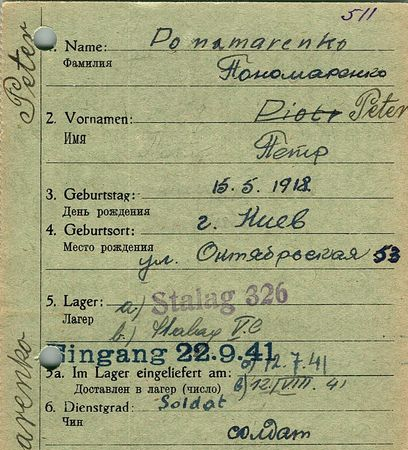 511
1. Name: Ponamarenko
Фамилия Пономаренко
2. Vornamen: Piotr Peter
Имя Петр
3. Geburtstag: 15. 5. 1918
День рождения
4. Geburtsort: г. Киев
Место рождения ул. Октябрьская 53
5. Lager: a.) Stalag 326
Лагер b.) Stalag V.C
Eingang 22.9.41 a) 12.7.41
5a. Im Lager eingeliefert am: b) 12.VIII. 41
Доставлен в лагер (число)
6. Dienstgrad: Soldat
Чин солдат
Peter
arenko